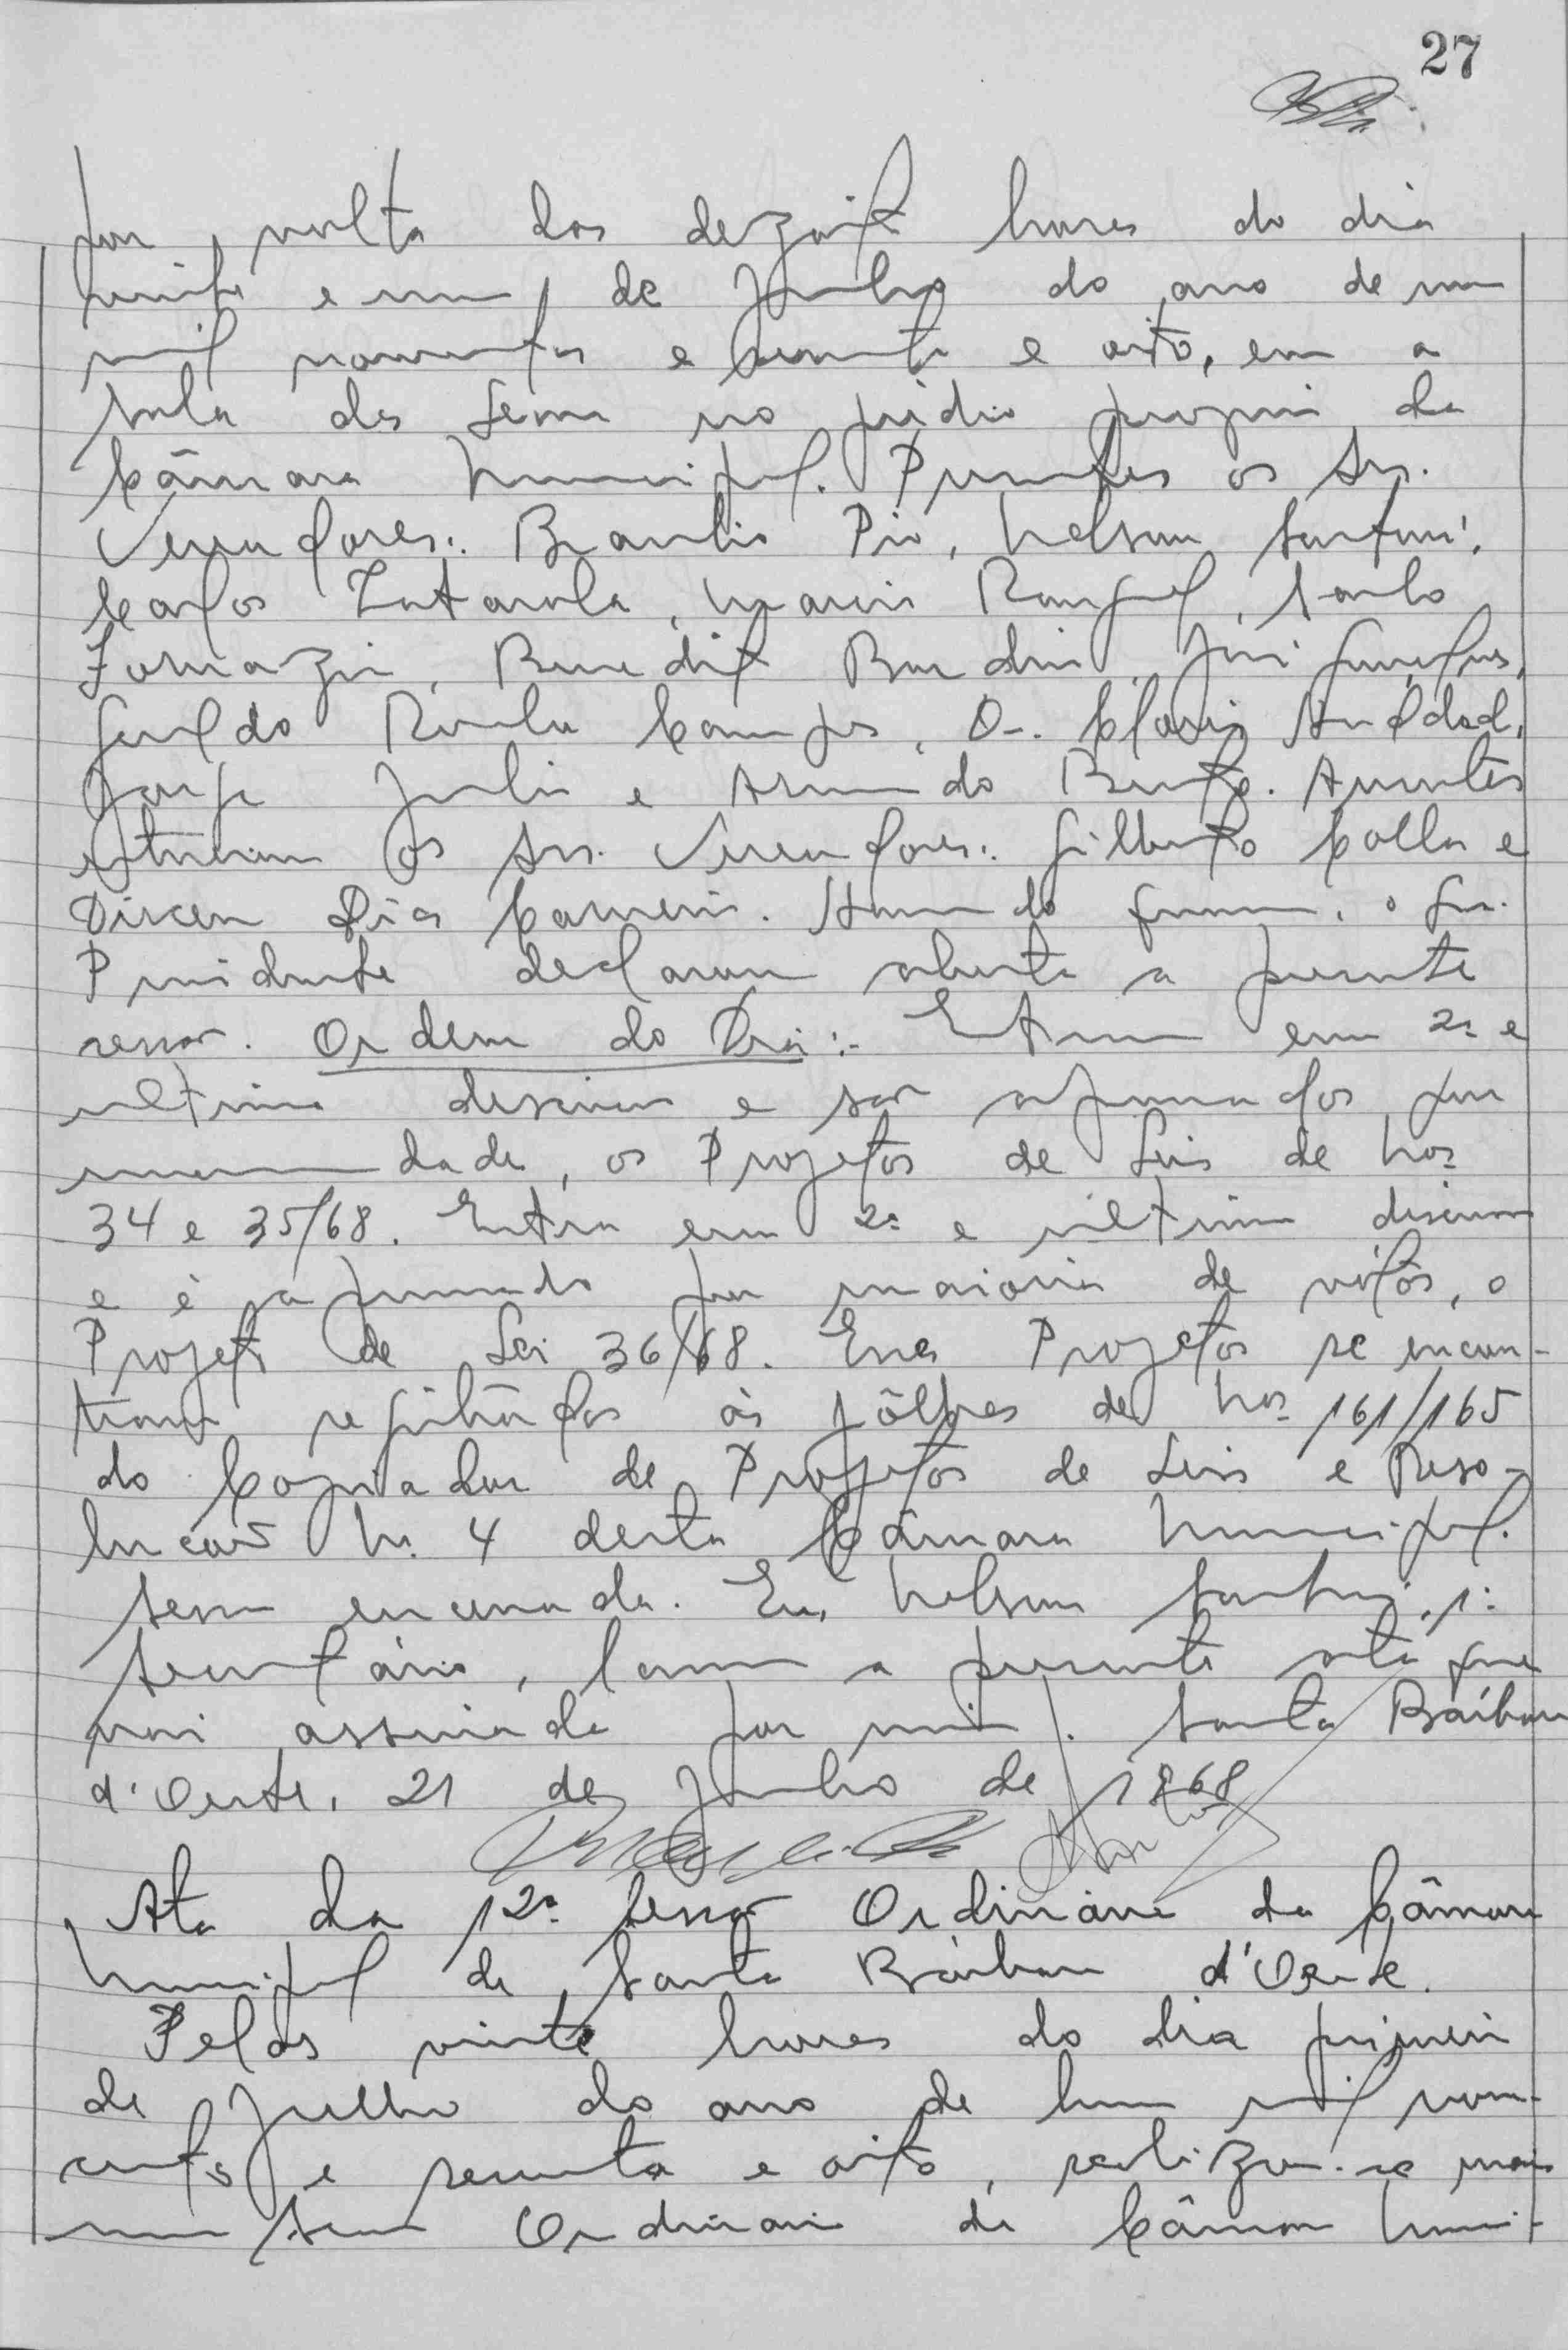 27
por volta das dezoito horas do dia
vinte e um de Junho do ano de um
mil novecentos e sessenta e oito, em a
sala das Sessões no prédio proprio da
Câmara Municipal. Presentes os Srs.
Vereadores:. Braulio Pio, Nelson Santoni,
Carlos Zatarola, Mario Rangel, Saulo
Fornazin, Benedito Bordin, José
Geraldo Rocha Campos, O-. Claris
Jorge Julio e Armindo Bento. Ausentes
estiveram os Srs. Vereadores:. Gilberto Colla e
Dirceu Dias Carneiro. Havendo numero, o Snr.
Presidente declarou aberta a presente
sessão. Ordem do Dia:- Entram em 2ª e
ultima discussão e são aprovados por
unanimidade, os Projetos de Leis de Nos.
34 e 35/68. Entra em 2ª e última discussão
e é aprovado por maioria de votos, o
Projeto de Lei 36/68. Esses Projetos se encon-
tram registrados às fôlhas de Nos. 161/165
do Copiador de Projetos de Leis e Reso-
lucões N. 4 desta Câmara Municipal.
Sessão encerrada. Eu, Nelson Santoni, 1º
Secretário, lavrei a presente ata que
vai assinada por mim. Santa Bárbara
d'Oeste, 21 de Junho de 1968
Ata da 12ª Sessão Ordinária da Câmara
Municipal de Santa Bárbara d'Oeste.
Pelas vinte horas do dia primeiro
de Julho do ano de hum mil nove-
centos e sessenta e oito, realizou-se mais
uma Sessão Ordinaria da Câmara Muni-